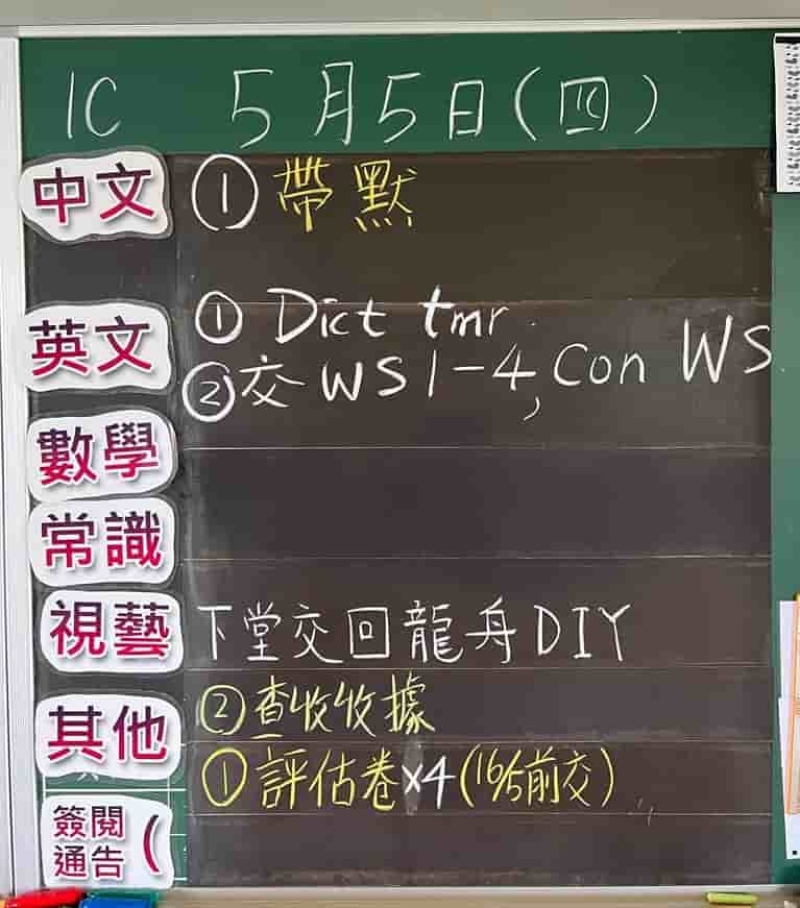 1C 5月5日(四)
中文 ①帶默
英文 ① Dict tmr.
②交 WS 1-4, Con WS
數學
常識
視藝 下堂交回龍舟DIY
其他 ②查收收據
①評估卷×4(16/5前交)
簽閱
通告 (